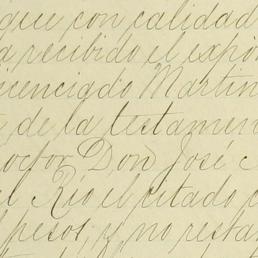 que con calidad
a recibido el expo
icenciado Martin
de la testamen
octor Don José
el Rio el citado
pesos; y no resta